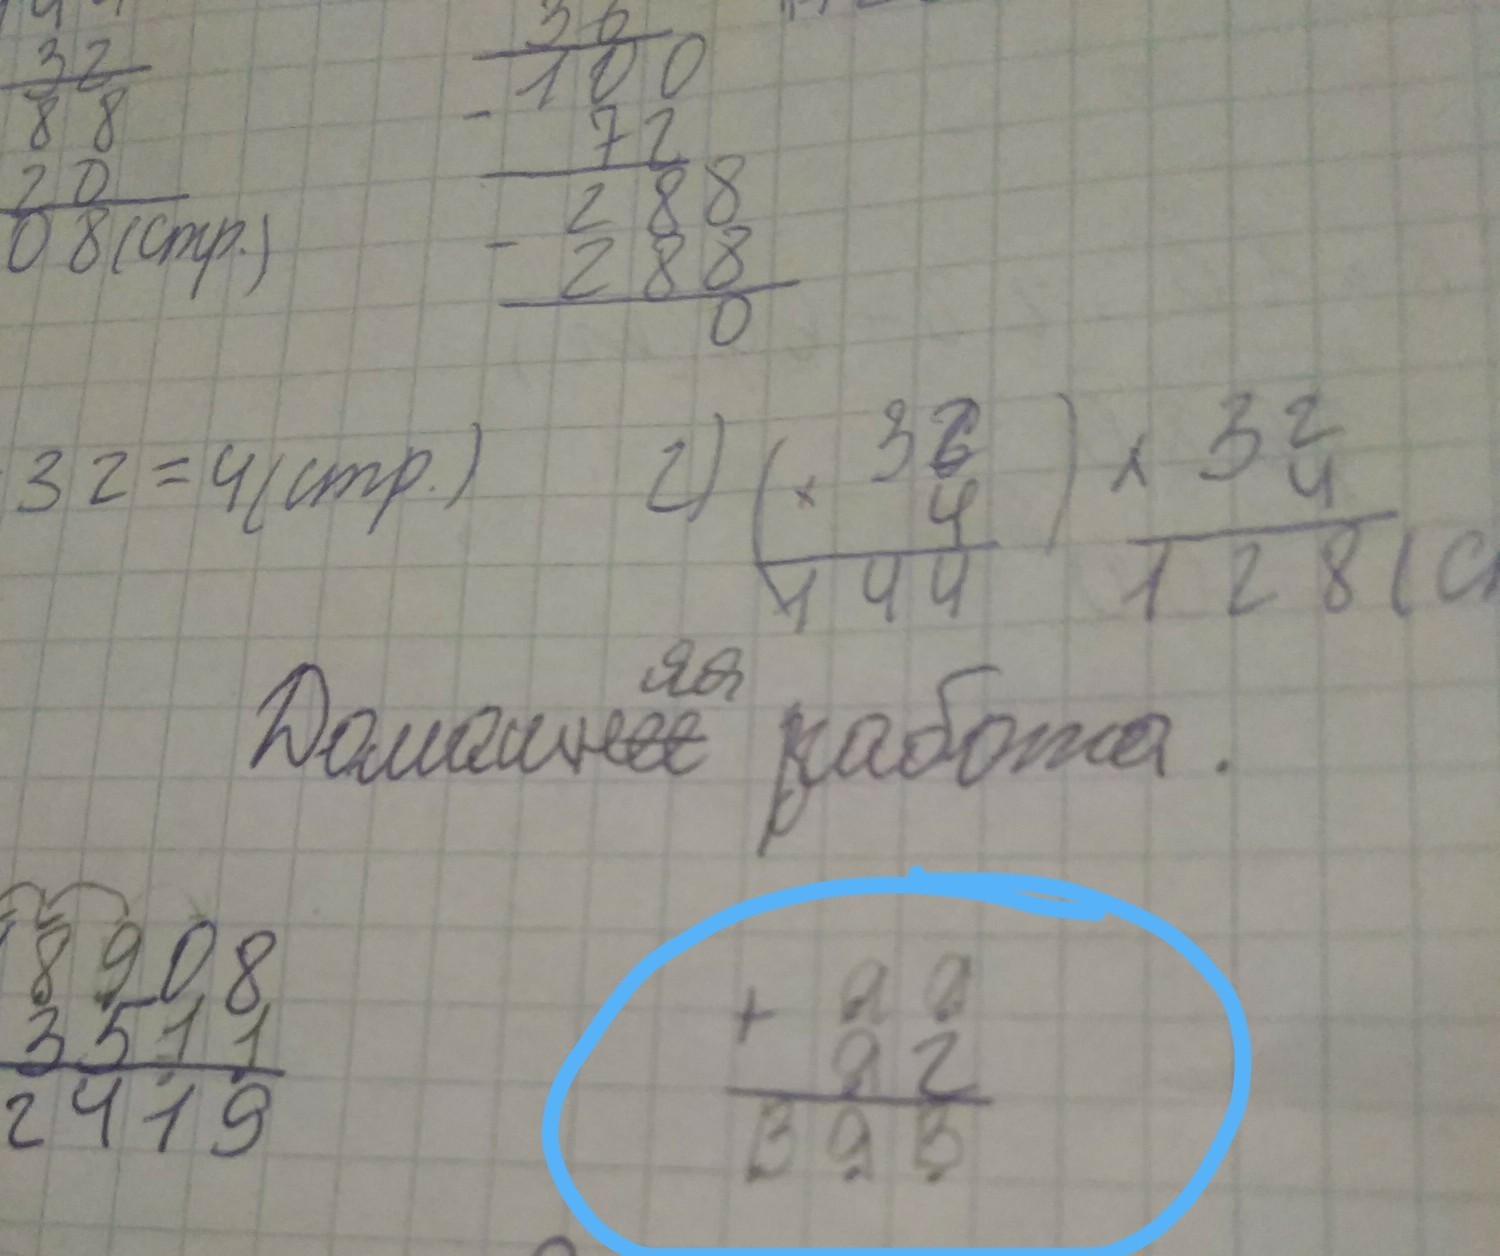 32
88
20
08(стр.)
36
100
- 72
288
- 288
0
32=4(стр.)
2) ( × 36
4
144 )
× 32
4
128(с
Домашняя работа.
8908
3511
2419